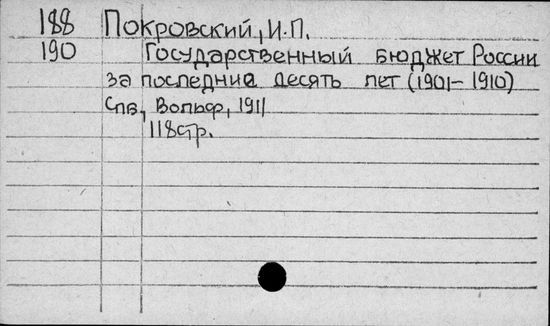 188 Покровский, И.П.
190 Государственный бюджет России
за последние десять лет (1901-1910)
Спв, Вольф, 1911
118стр.